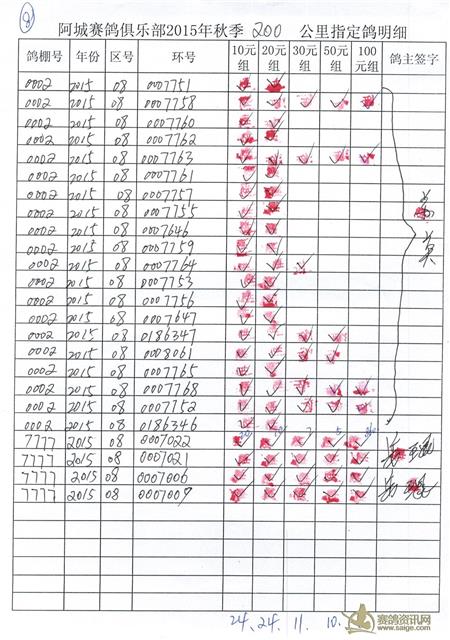 ⑧
阿城赛鸽俱乐部2015年秋季 200 公里指定鸽明细
鸽棚号 年份 区号 环号 10元组 20元组 30元组 50元组 100元组 鸽主签字
0002 2015 08 0007751 ✓ ✓
0002 2015 08 0007758 ✓ ✓ ✓ ✓ ✓
0002 2015 08 0007760 ✓ ✓
0002 2015 08 0007762 ✓ ✓
0002 2015 08 0007763 ✓ ✓ ✓ ✓ ✓
0002 2015 08 0007761 ✓ ✓
0002 2015 08 0007757 ✓ ✓
0002 2015 08 0007755 ✓ ✓
0002 2015 08 0007646 ✓ ✓
0002 2015 08 0007759 ✓ ✓
0002 2015 08 0007764 ✓ ✓ ✓
0002 2015 08 0007753 ✓ ✓
0002 2015 08 0007756 ✓ ✓
0002 2015 08 0007647 ✓ ✓
0002 2015 08 0186347 ✓ ✓ ✓ ✓
0002 2015 08 0008061 ✓ ✓ ✓ ✓
0002 2015 08 0007765 ✓ ✓
0002 2015 08 0007768 ✓ ✓ ✓ ✓ ✓
0002 2015 08 0007752 ✓ ✓ ✓ ✓ ✓
0002 2015 08 0186346 ✓ ✓
7777 2015 08 0007022 ✓ ✓ ✓ ✓ ✓
7777 2015 08 0007021 ✓ ✓ ✓ ✓ ✓
7777 2015 08 0007006 ✓ ✓ ✓ ✓ ✓
7777 2015 08 0007009 ✓ ✓ ✓ ✓ ✓
24. 24. 11. 10.
赛鸽资讯网
www.saige.com